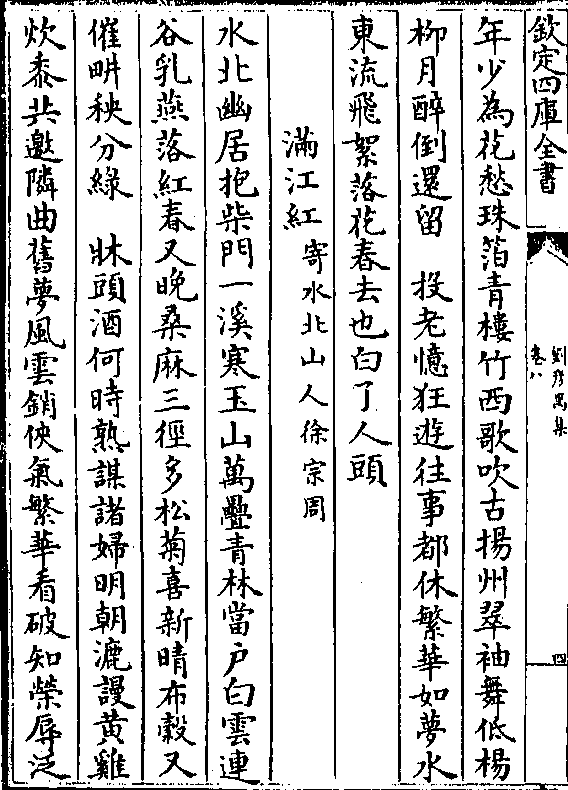 欽定四庫全書
劉彦昺集
卷八
四
年少為花愁珠箔青樓竹西歌吹古揚州翠袖舞低楊
柳月醉倒還留　投老憶狂遊往事都休繁華如夢水
東流飛絮落花春去也白了人頭
滿江紅寄水北山人徐宗周
水北幽居抱柴門一溪寒玉山萬疊青林當户白雲連
谷乳燕落紅春又晚桑麻三徑多松菊喜新晴布穀又
催畊秧分緑　牀頭酒何時熟謀諸婦明朝漉謾黄雞
炊黍共邀隣曲舊夢風雲銷俠氣繁華看破知榮辱泛